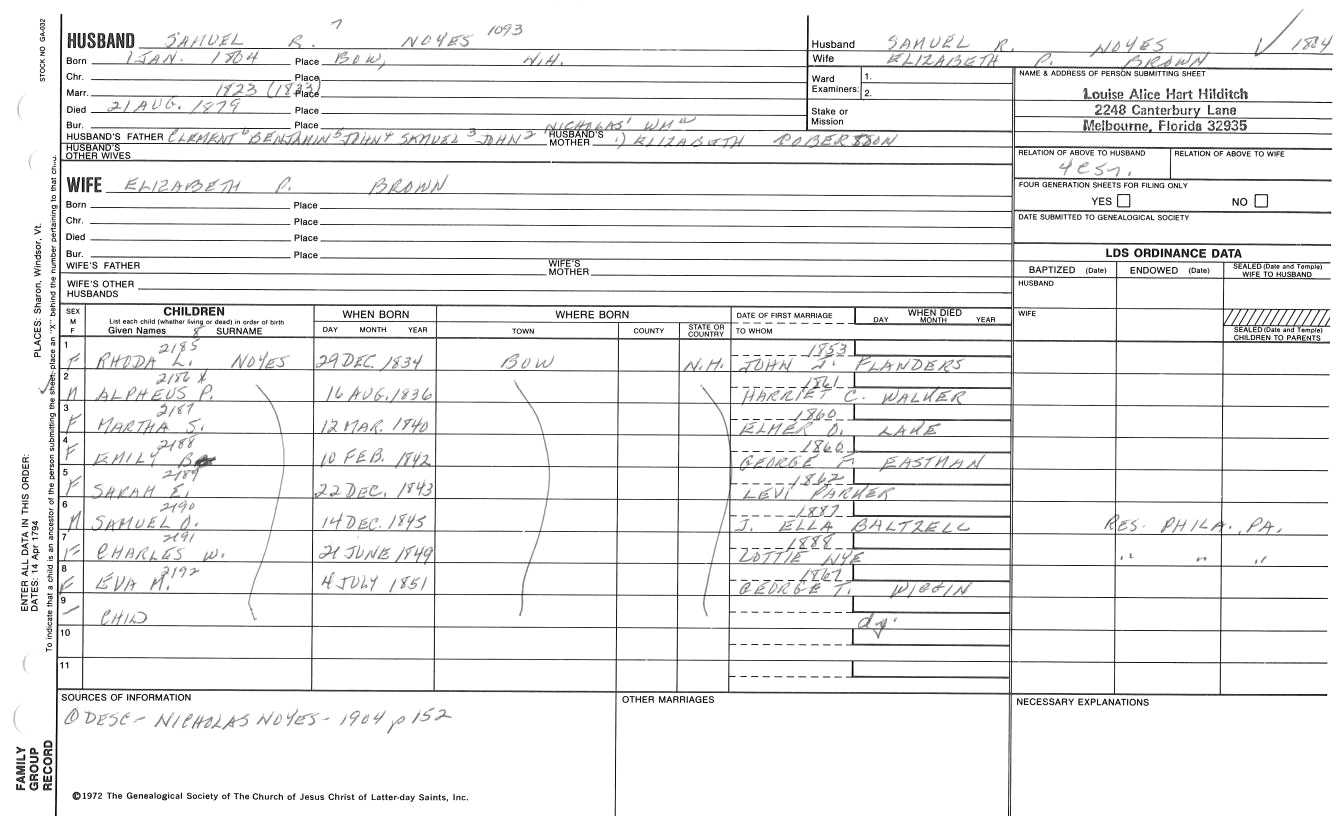 STOCK NO GA-032
HUSBAND SAMUEL R. 7 NOYES 1093
Born 1 JAN. 1804 Place BOW, N.H.
Chr. Place
Marr. 1823 (1833) Place
Died 21 AUG. 1879 Place
Bur. Place
HUSBAND'S FATHER CLEMENT 6 BENJAMIN 5 JOHN 4 SAMUEL 3 JOHN 2 NICHOLAS 1 WM
HUSBAND'S MOTHER 1) ELIZABETH ROBERTSON
HUSBAND'S OTHER WIVES
Husband SAMUEL R. NOYES 1804
Wife ELIZABETH P. BROWN
Ward Examiners: 1.
2.
Stake or Mission
NAME & ADDRESS OF PERSON SUBMITTING SHEET
Louise Alice Hart Hilditch
2248 Canterbury Lane
Melbourne, Florida 32935
RELATION OF ABOVE TO HUSBAND RELATION OF ABOVE TO WIFE
FOUR GENERATION SHEETS FOR FILING ONLY
YES NO
DATE SUBMITTED TO GENEALOGICAL SOCIETY
WIFE ELIZABETH P. BROWN
Born Place
Chr. Place
Died Place
Bur. Place
WIFE'S FATHER WIFE'S MOTHER
WIFE'S OTHER HUSBANDS
LDS ORDINANCE DATA
BAPTIZED (Date) ENDOWED (Date) SEALED (Date and Temple) WIFE TO HUSBAND
HUSBAND
WIFE
SEALED (Date and Temple) CHILDREN TO PARENTS
SEX M F
CHILDREN
List each child (whether living or dead) in order of birth
Given Names 8 SURNAME
WHEN BORN
DAY MONTH YEAR
WHERE BORN
TOWN COUNTY STATE OR COUNTRY
DATE OF FIRST MARRIAGE
TO WHOM
WHEN DIED
DAY MONTH YEAR
1 2185 1853
F RHODA L. NOYES 29 DEC. 1834 BOW N.H. JOHN J. FLANDERS
2 2186 x 1861
M ALPHEUS P. 16 AUG. 1836 HARRIET C. WALKER
3 2187 1860
F MARTHA S. 12 MAR. 1840 ELMER O. LAKE
4 2188 1860
F EMILY 10 FEB. 1842 GEORGE F. EASTMAN
5 2189 1862
F SARAH E. 22 DEC. 1843 LEVI PARKER
6 2190 1887
M SAMUEL O. 14 DEC. 1845 J. ELLA BALTZELL RES. PHILA., PA.
7 2191 1888
CHARLES W. 21 JUNE 1849 LOTTIE NYE " " "
8 2192 1867
F EVA M. 4 JULY 1851 GEORGE T. WIGGIN
9
CHILD dy.
10
11
SOURCES OF INFORMATION
① DESC - NICHOLAS NOYES - 1904 p 152
OTHER MARRIAGES
NECESSARY EXPLANATIONS
©1972 The Genealogical Society of The Church of Jesus Christ of Latter-day Saints, Inc.
FAMILY GROUP RECORD
ENTER ALL DATA IN THIS ORDER:
DATES: 14 Apr 1794
PLACES: Sharon, Windsor, Vt.
To indicate that a child is an ancestor of the person submitting the sheet, place an "X" behind the number pertaining to that child.